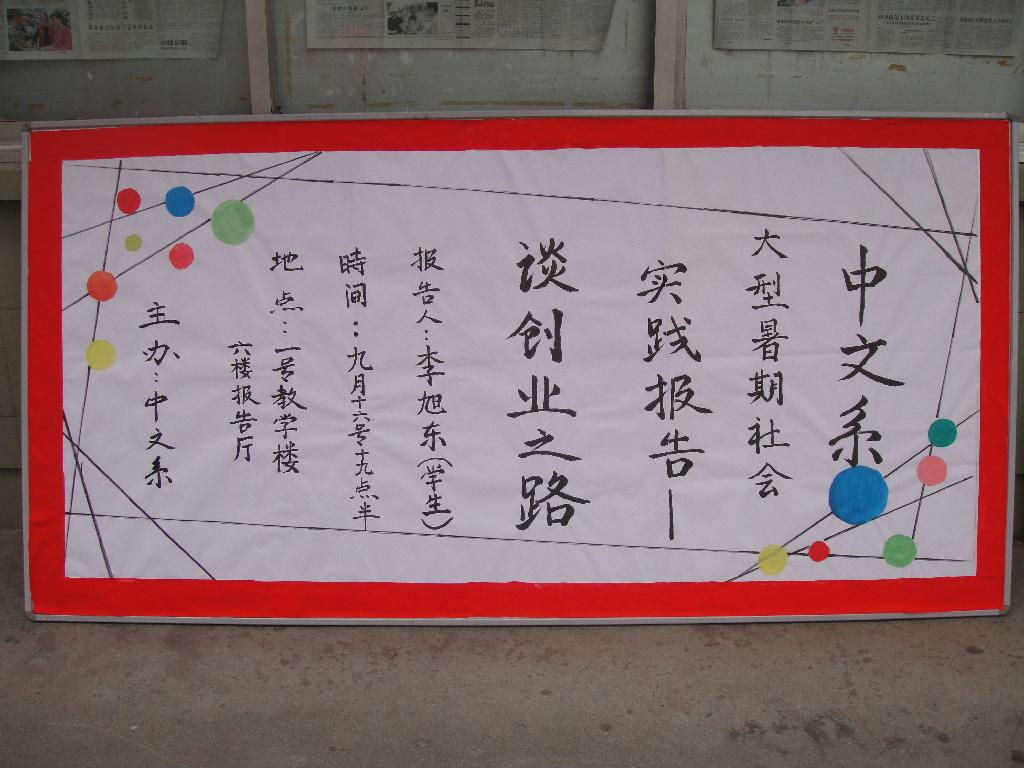 中文系
大型暑期社会
实践报告—
谈创业之路
报告人：李旭东（学生）
時间：九月十六号十九点半
地点：一号教学楼
六楼报告厅
主办：中文系